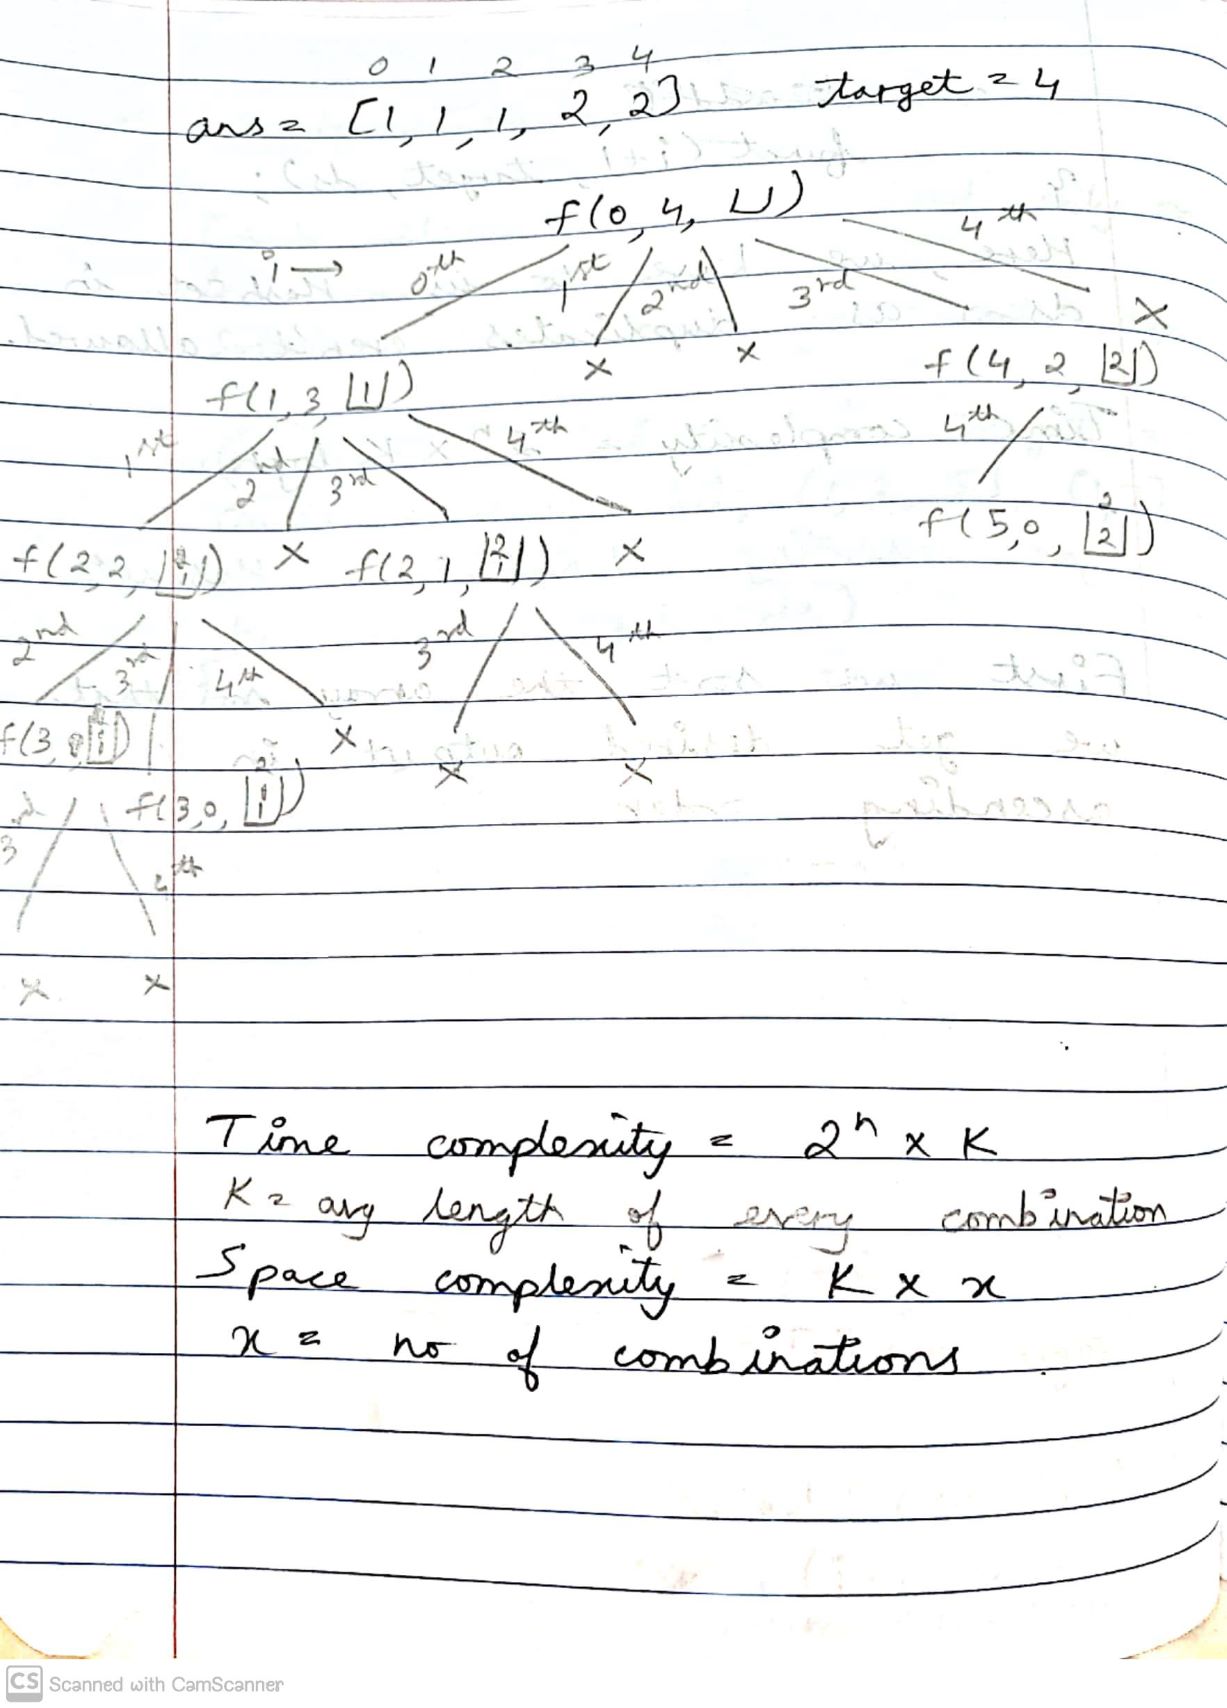 0 1 2 3 4
ans = [1, 1, 1, 2, 2] target = 4
f(0, 4, ⊔)
i → 0th 1st 2nd 3rd 4th
x x x
f(1, 3, |1|) f(4, 2, |2|)
1st 2nd 3rd 4th 4th
f(5, 0, |2 2|)
f(2, 2, ) x f(2, 1, |2 1|) x
2nd 3rd 4th 3rd 4th
f(3, x
f(3, 0, x x
3rd 4th
x x
Time complexity = 2^n x K
K = avg length of every combination
Space complexity = K x x
x = no of combinations
CS Scanned with CamScanner